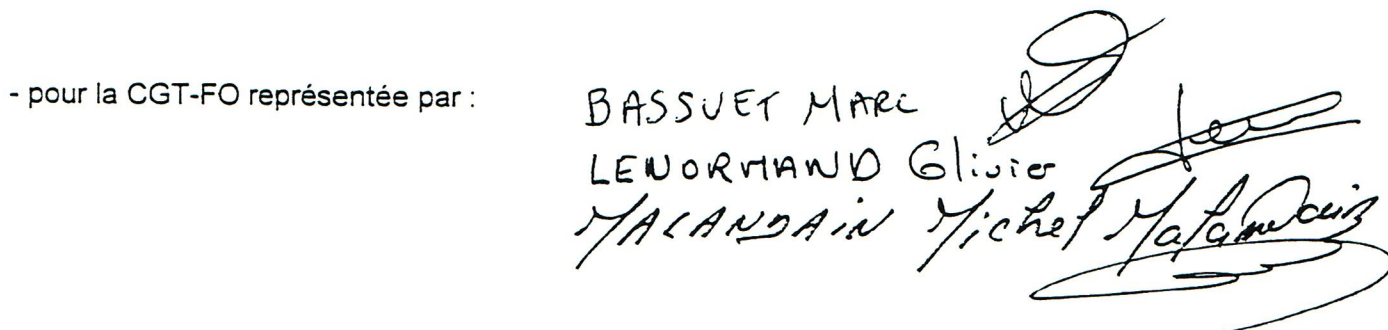 - pour la CGT-FO représentée par :
BASSUET MARC
LENORMAND Olivier
MALANDAIN Michel Malandain